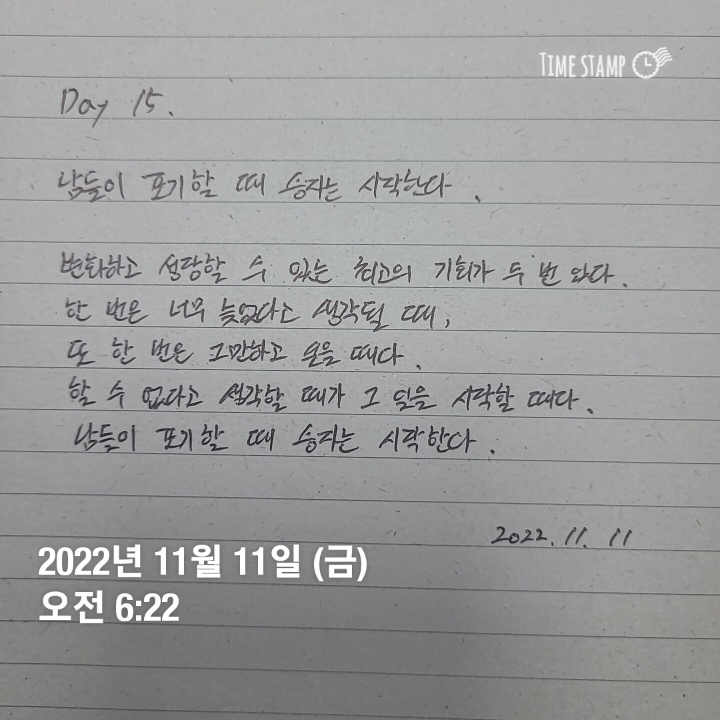 TIME STAMP
Day 15.
남들이 포기할 때 승자는 시작한다.
변화하고 성장할 수 있는 최고의 기회가 두 번 온다.
한 번은 너무 늦었다고 생각될 때,
또 한 번은 그만하고 싶을 때다.
할 수 없다고 생각할 때가 그 일을 시작할 때다.
남들이 포기할 때 승자는 시작한다.
2022. 11. 11
2022년 11월 11일 (금)
오전 6:22